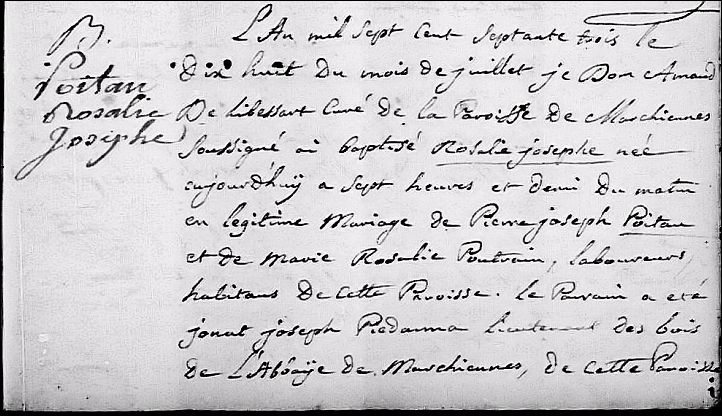 B.
Poitau
Rosalie
Josephe
L'An mil sept cent septante trois le
Dix huit Du mois de juillet je Don Amand
De libessart Curé de la Paroisse De Marchiennes
Soussigné ai baptisé Rosalie josephe neé
aujourd'huÿ a sept heures et demi Du matin
en legitime Mariage de Pierre joseph Poitau
et de Marie Rosalie Poutrain, laboureurs
habitans De cette Paroisse. le Parain a eté
joseph lieutenant des bois
de L'Abbaÿe de Marchiennes, de cette Paroisse